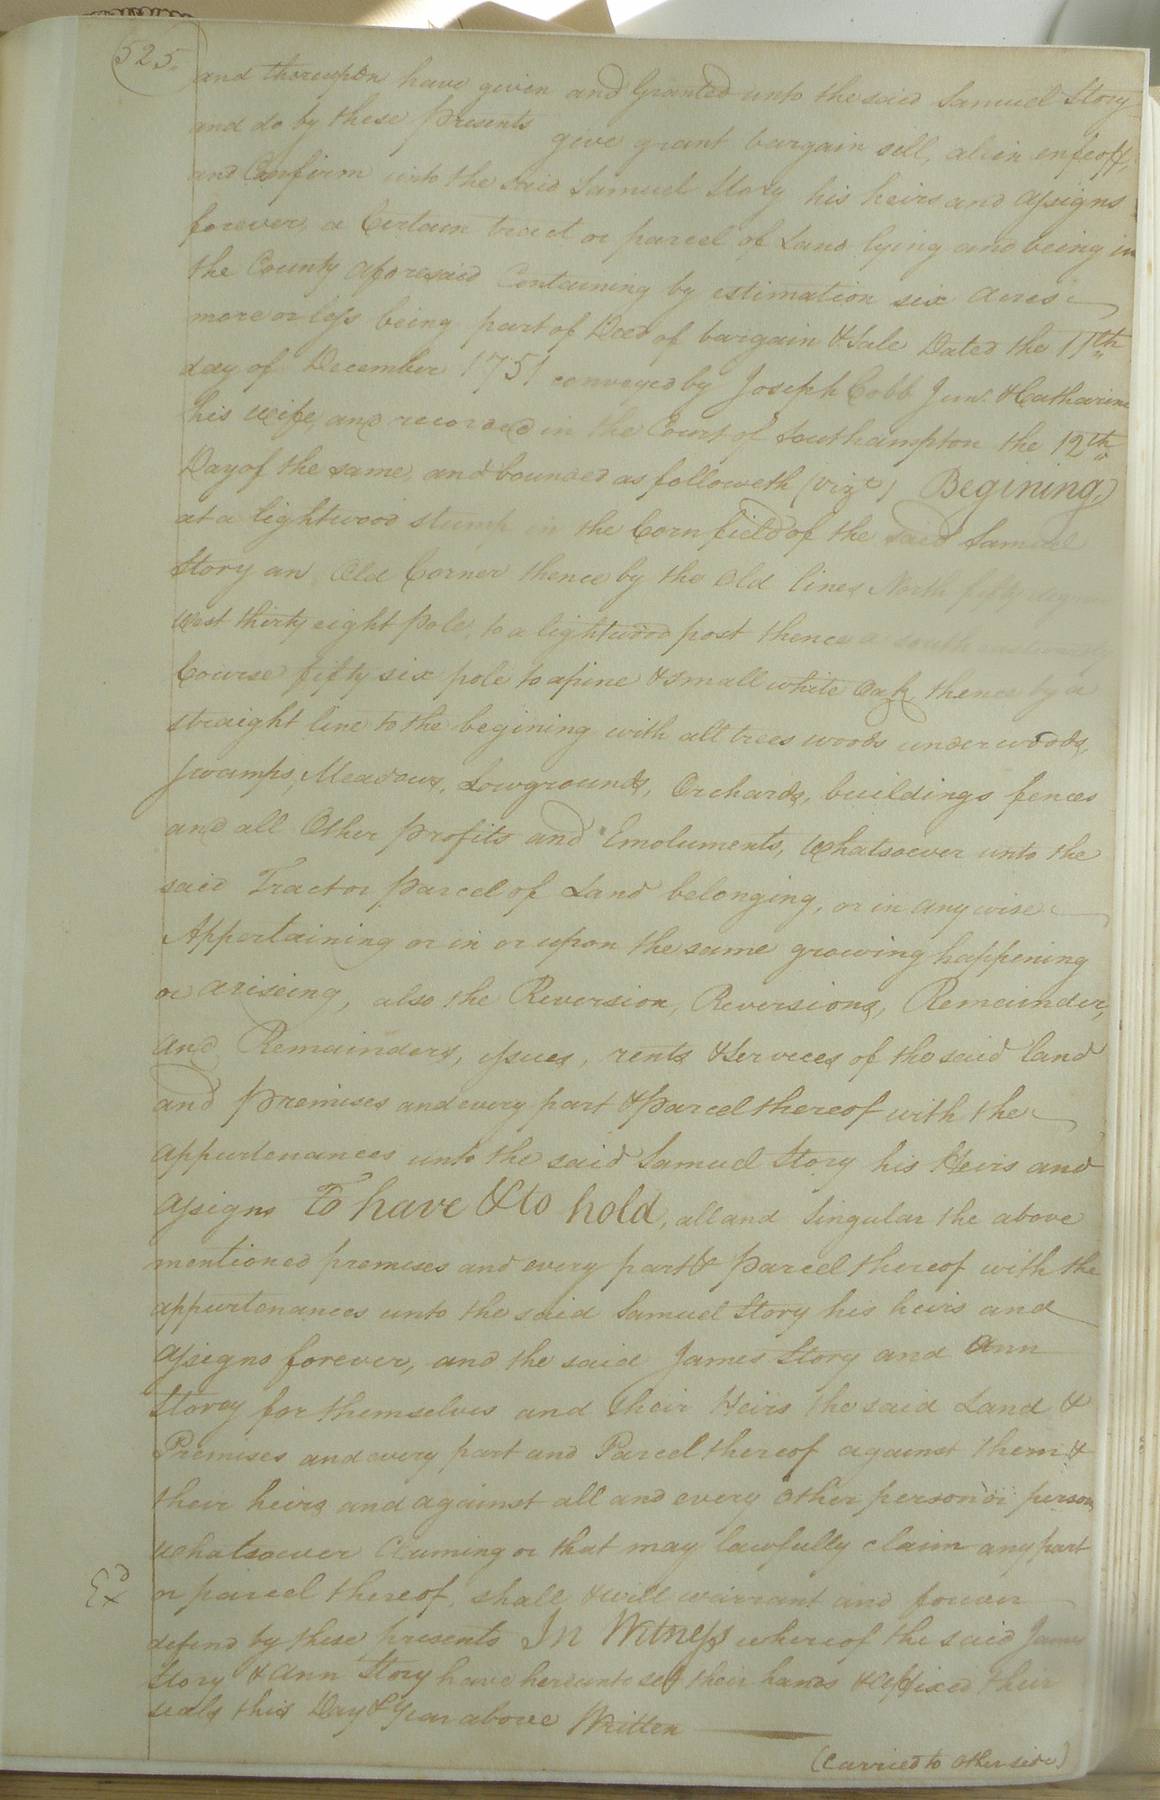 525.
and thereupon have given and Granted unto the said Samuel Story
and do by these Presents give grant bargain sell, alien enfeoff,
and Confirm unto the said Samuel Story his heirs and assigns
forever, a Certain tract or parcel of Land lying and being in
the County aforesaid Containing by estimation six acres
more or less being part of Deed of bargain & Sale Dated the 11th
day of December 1751 conveyed by Joseph Cobb Junr. & Catharine
his wife, and recorded in the Court of Southampton the 12th
Day of the same, and bounded as followeth (vizt) Begining,
at a lightwood stump in the Cornfield of the said Samuel
Story an Old Corner thence by the old lines North fifty degrees
West thirty eight Pole, to a lightwood post thence a south
Course fifty six pole to a pine & small white Oak thence by a
straight line to the begining with all trees woods under woods,
swamps, Meadows, Lowgrounds, Orchards, buildings fences
and all Other profits and Emoluments, Whatsoever unto the
said Tract or parcel of Land belonging, or in any wise
Appertaining or in or upon the same growing happening
or ariseing, also the Reversion, Reversions, Remainder,
and Remainders, issues, rents & services of the said land
and Premises and every part & Parcel thereof with the
appurtenances unto the said Samuel Story his Heirs and
assigns To have & to hold, all and Singular the above
mentioned premises and every part & Parcel thereof with the
appurtenances unto the said Samuel Story his heirs and
assigns forever, and the said James Story and Ann
Storey for themselves and their Heirs the said Land &
Premises and every part and Parcel thereof against them &
their heirs and against all and every Other person or persons
whatsoever Claiming or that may lawfully claim any part
Exd or parcel thereof, shall & will warrant and forever
defend by these presents In Witness whereof the said James
Story & Ann Story have hereunto set their hands & affixed their
seals this Day & Year above Written
(Carried to Otherside)